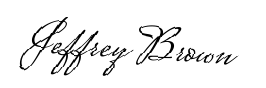 Jeffrey Brown